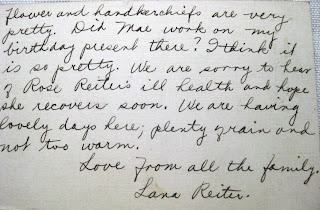 flower and handkerchiefs are very
pretty. Did Mae work on my
birthday present there? I think it
is so pretty. We are sorry to hear
of Rose Reiter's ill health and hope
she recovers soon. We are having
lovely days here; plenty grain and
not too warm.
Love from all the family.
Lana Reiter.